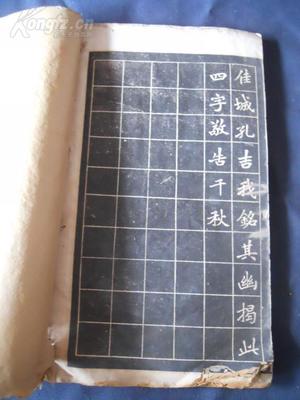 佳城孔吉我銘其幽揭此
四字敬告千秋